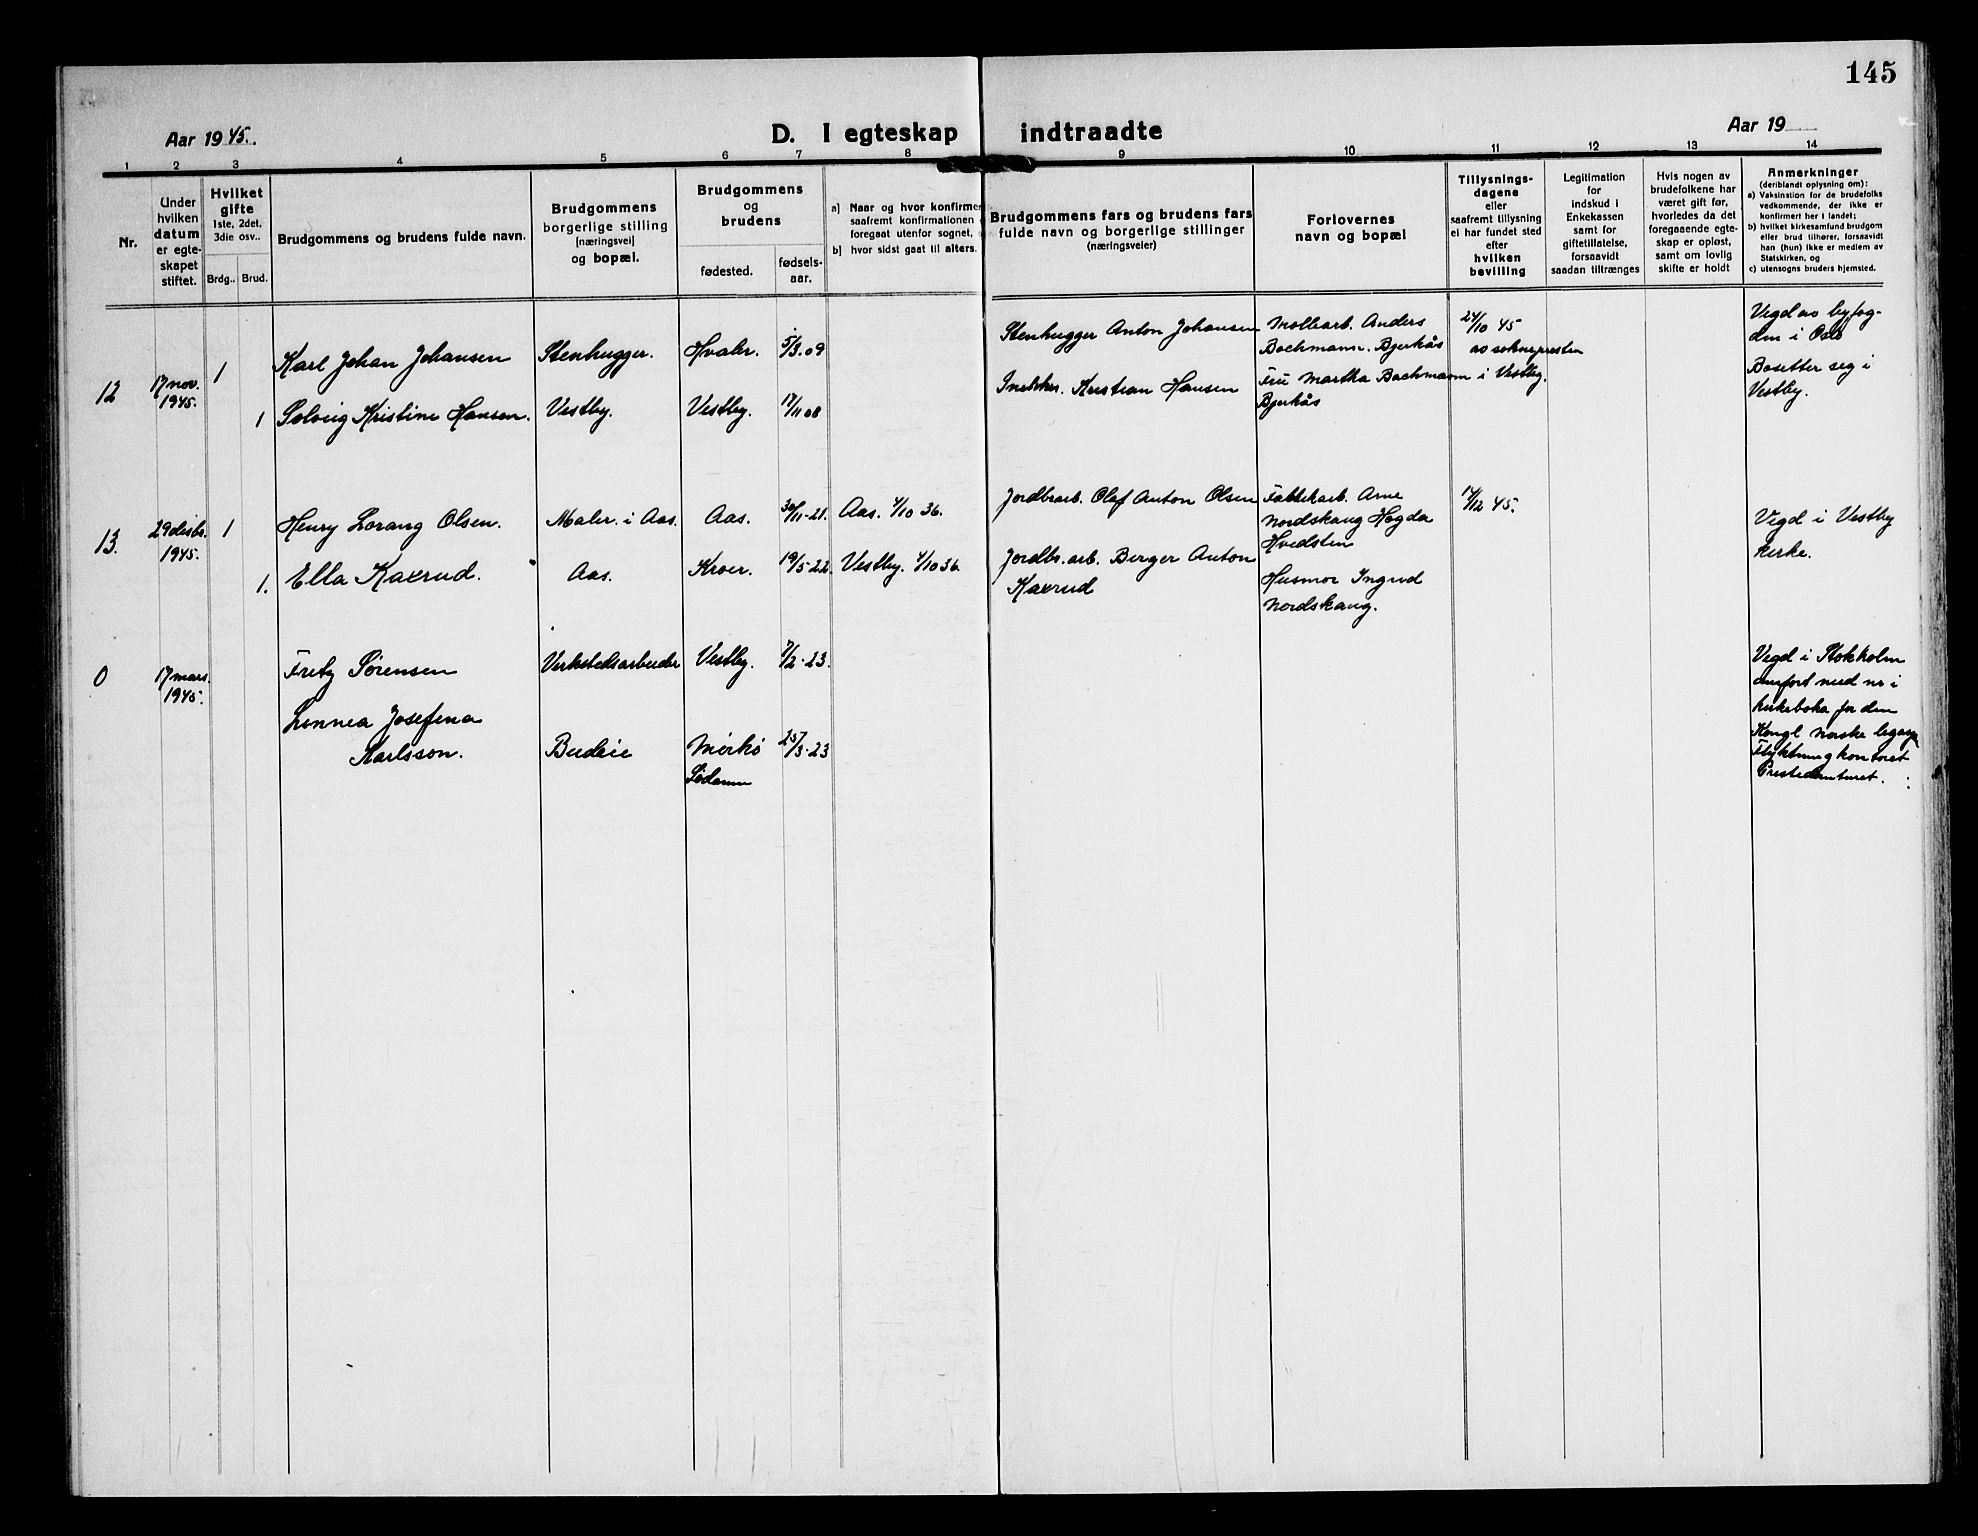 145
Aar 1945.
D. I egteskap indtraadte
Aar 19
1 2 3 4 5 6 7 8 9 10 11 12 13 14
Nr.
Under
hvilken
datum
er egte-
skapet
stiftet.
Hvilket
gifte
1ste, 2det,
3die osv..
Brdg.. Brud.
Brudgommens og brudens fulde navn.
Brudgommens
borgerlige stilling
(næringsvei)
og bopæl.
Brudgommens
og
brudens
fødested.
fødsels-
aar.
a) Naar og hvor konfirmer
saafremt konfirmationen
foregaat utenfor sognet,
b) hvor sidst gaat til alters.
Brudgommens fars og brudens fars
fulde navn og borgerlige stillinger
(næringsveier)
Forlovernes
navn og bopæl
Tillysnings-
dagene
eller
saafremt tillysning
ei har fundet sted
efter
hvilken
bevilling
Legitimation
for
indskud i
Enkekassen
samt for
giftetillatelse,
forsaavidt
saadan tiltrænges
Hvis nogen av
brudefolkene har
været gift før,
hvorledes da det
foregaaende egte-
skap er opløst,
samt om lovlig
skifte er holdt
Anmerkninger
(deriblandt oplysning om):
a) Vaksination for de brudefolks
vedkommende, der ikke er
konfirmert her i landet;
b) hvilket kirkesamfund brudgom
eller brud tilhører, forsaavidt
han (hun) ikke er medlem av
Statskirken, og
c) utensogns bruders hjemsted.
12
17 nov.
1945.
1
Karl Johan Johansen
Stenhugger.
Hvaler.
5/3.09
Stenhugger Anton Johansen
Møllearb. Anders
Bachmann. Bjerkås
24/10 45
av soknepresten
i Vestby.
Vegd av byfog-
den i Oslo
Bosetter seg i
Vestby.
1
Solveig Kristine Hansen.
Vestby.
Vestby.
17/11 08
Kristian Hansen
Fru Martha Bachmann
Bjerkås
13.
29 desbr.
1945.
1
Henry Lorang Olsen.
Maler. i Aas.
Aas.
30/11-21.
Aas. 4/10 36.
Jordbrarb. Olaf Anton Olsen
Fabbrikarb. Arne
Nordskaug Høgda
Hvidsten
14/12 45.
Vegd i Vestby
kirke.
1.
Ella Kaxrud.
Aas.
Kroer.
19/5-22.
Vestby. 4/10 36.
Jordbr.arb. Birger Anton
Kaxrud
Husmor Ingrid
Nordskaug.
0
17 mars.
1945.
Fritz Sørensen
Verkstedsarbeider
Vestby.
7/2-23.
Vegd i Stokholm
omfort med nr i
kirkeboka for den
Kongl norske legasj
Flyktningkontoret
Prestekontoret.
Linnea Josefina
Karlsson.
Budeie
Mörkö
25/3-23